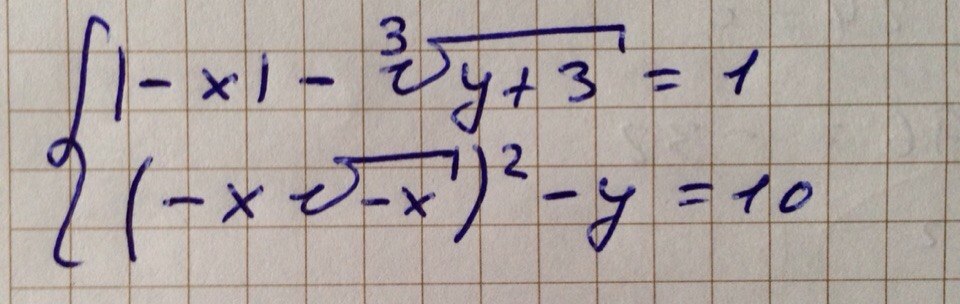 |-x| - ∛(y+3) = 1
(-x√(-x))² - y = 10